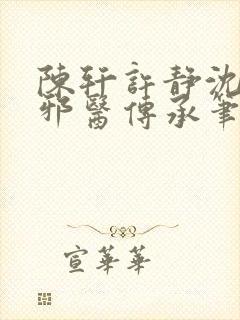 陳軒許靜沈
邪醫傳承筆
宣華華